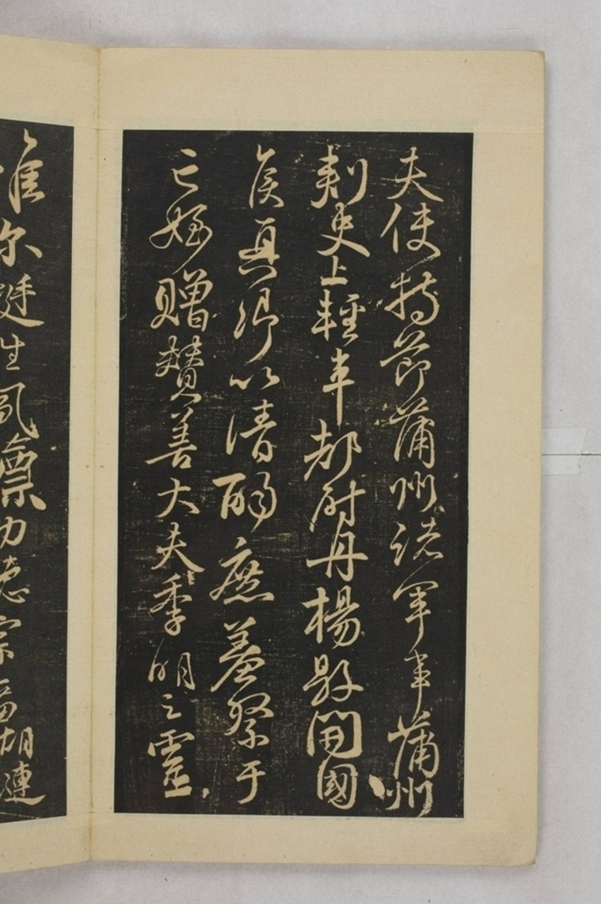 夫使持節蒲州諸軍事蒲州
刺史上輕車都尉丹楊縣開國
侯真卿以清酌庶羞祭于
亡姪贈贊善大夫季明之靈
惟爾挺生夙標幼德宗廟瑚璉